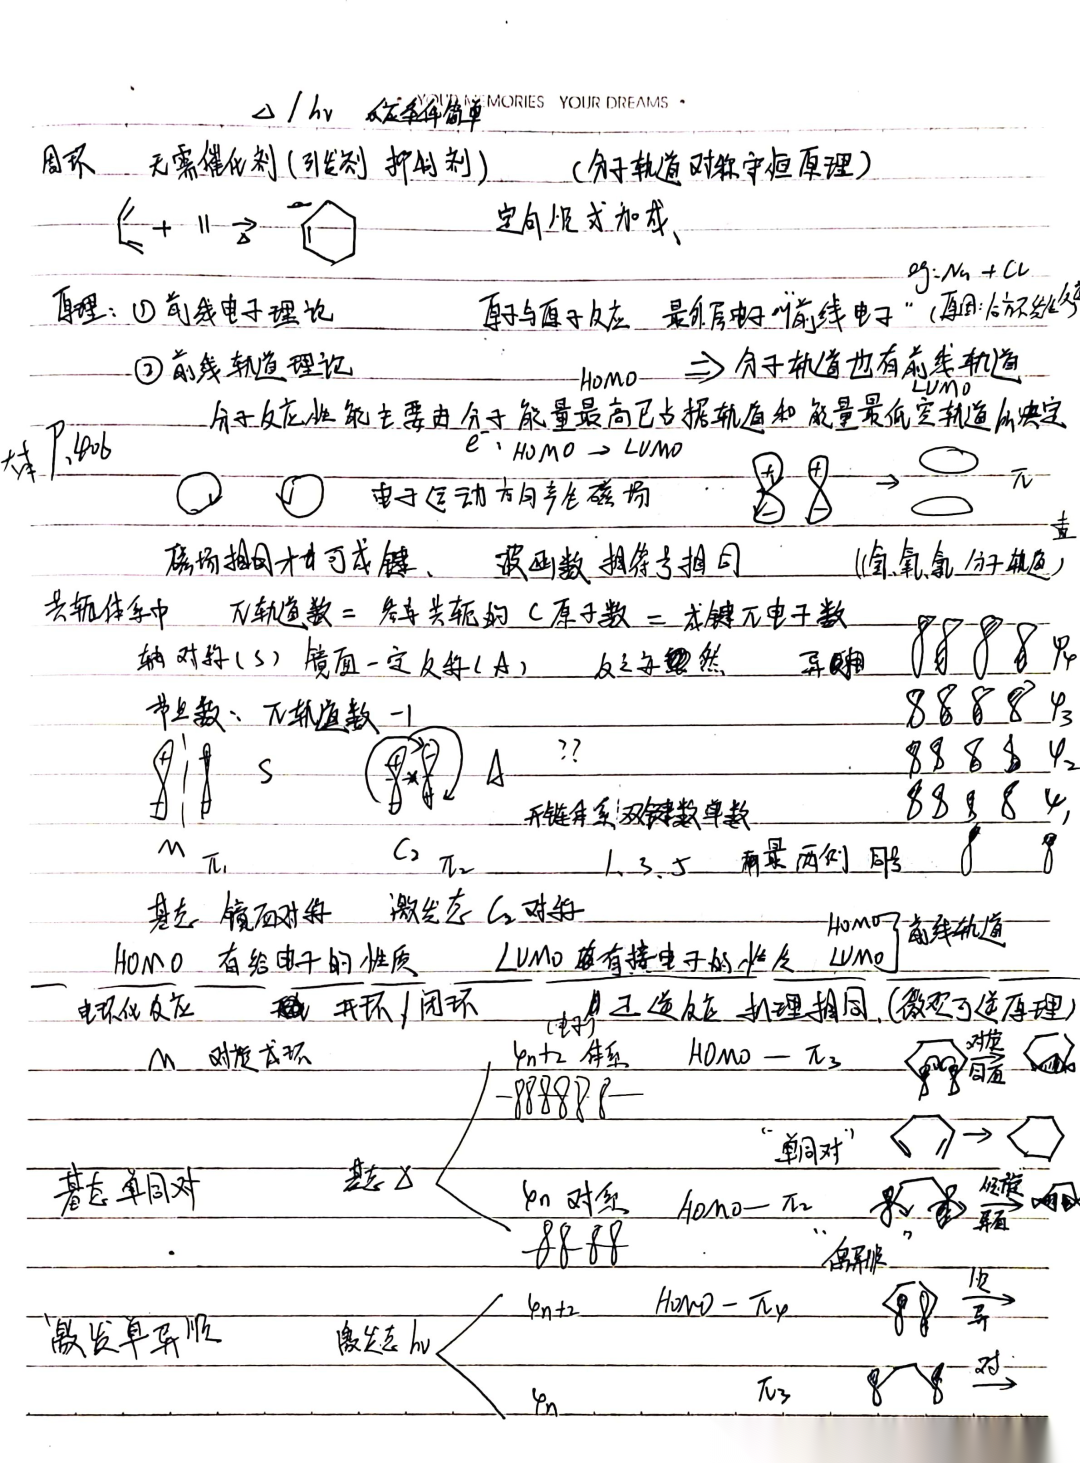 YOUR MEMORIES YOUR DREAMS
△ / hν 反应条件简单
周环 无需催化剂(引发剂 抑制剂) (分子轨道对称守恒原理)
+ → △ 定向顺式加成、
eg: Na + Cl
原理: ① 前线电子理论 原子与原子反应 最外层电子"前线电子"
② 前线轨道理论 ⇒ 分子轨道也有前线轨道
HOMO LUMO
分子反应性能主要由分子能量最高已占据轨道和能量最低空轨道所决定
P.406 e⁻: HOMO → LUMO
电子运动方向产生磁场 + + - - → π
磁场相同才可成键、 波函数相符号相同 (氢、氧、氮 分子轨道)
共轭体系中 π轨道数 = 参与共轭的C原子数 = 成键π电子数
轴对称(S) 镜面一定反称(A) 反之亦然 ψ4
节点数: π轨道数 -1 ψ3
S A ?? ψ2
开链体系双键数单数 ψ1
m π1 C2 π2 1.3.5 最两侧同号
基态 镜面对称 激发态 C2对称
HOMO 有给电子的性质 LUMO 有接电子的性质 HOMO LUMO 前线轨道
电环化反应 开环/闭环 正逆反应 机理相同 (微观可逆原理)
m 对旋成环 (电子) 4n+2 体系 HOMO — π3 对旋 同面
"单同对" →
基态单同对 基态 △ 4n 体系 HOMO — π2 顺旋 异面
"偶异顺"
"激发单异顺 激发态 hν 4n+2 HOMO — π4 顺 异
4n π3 对